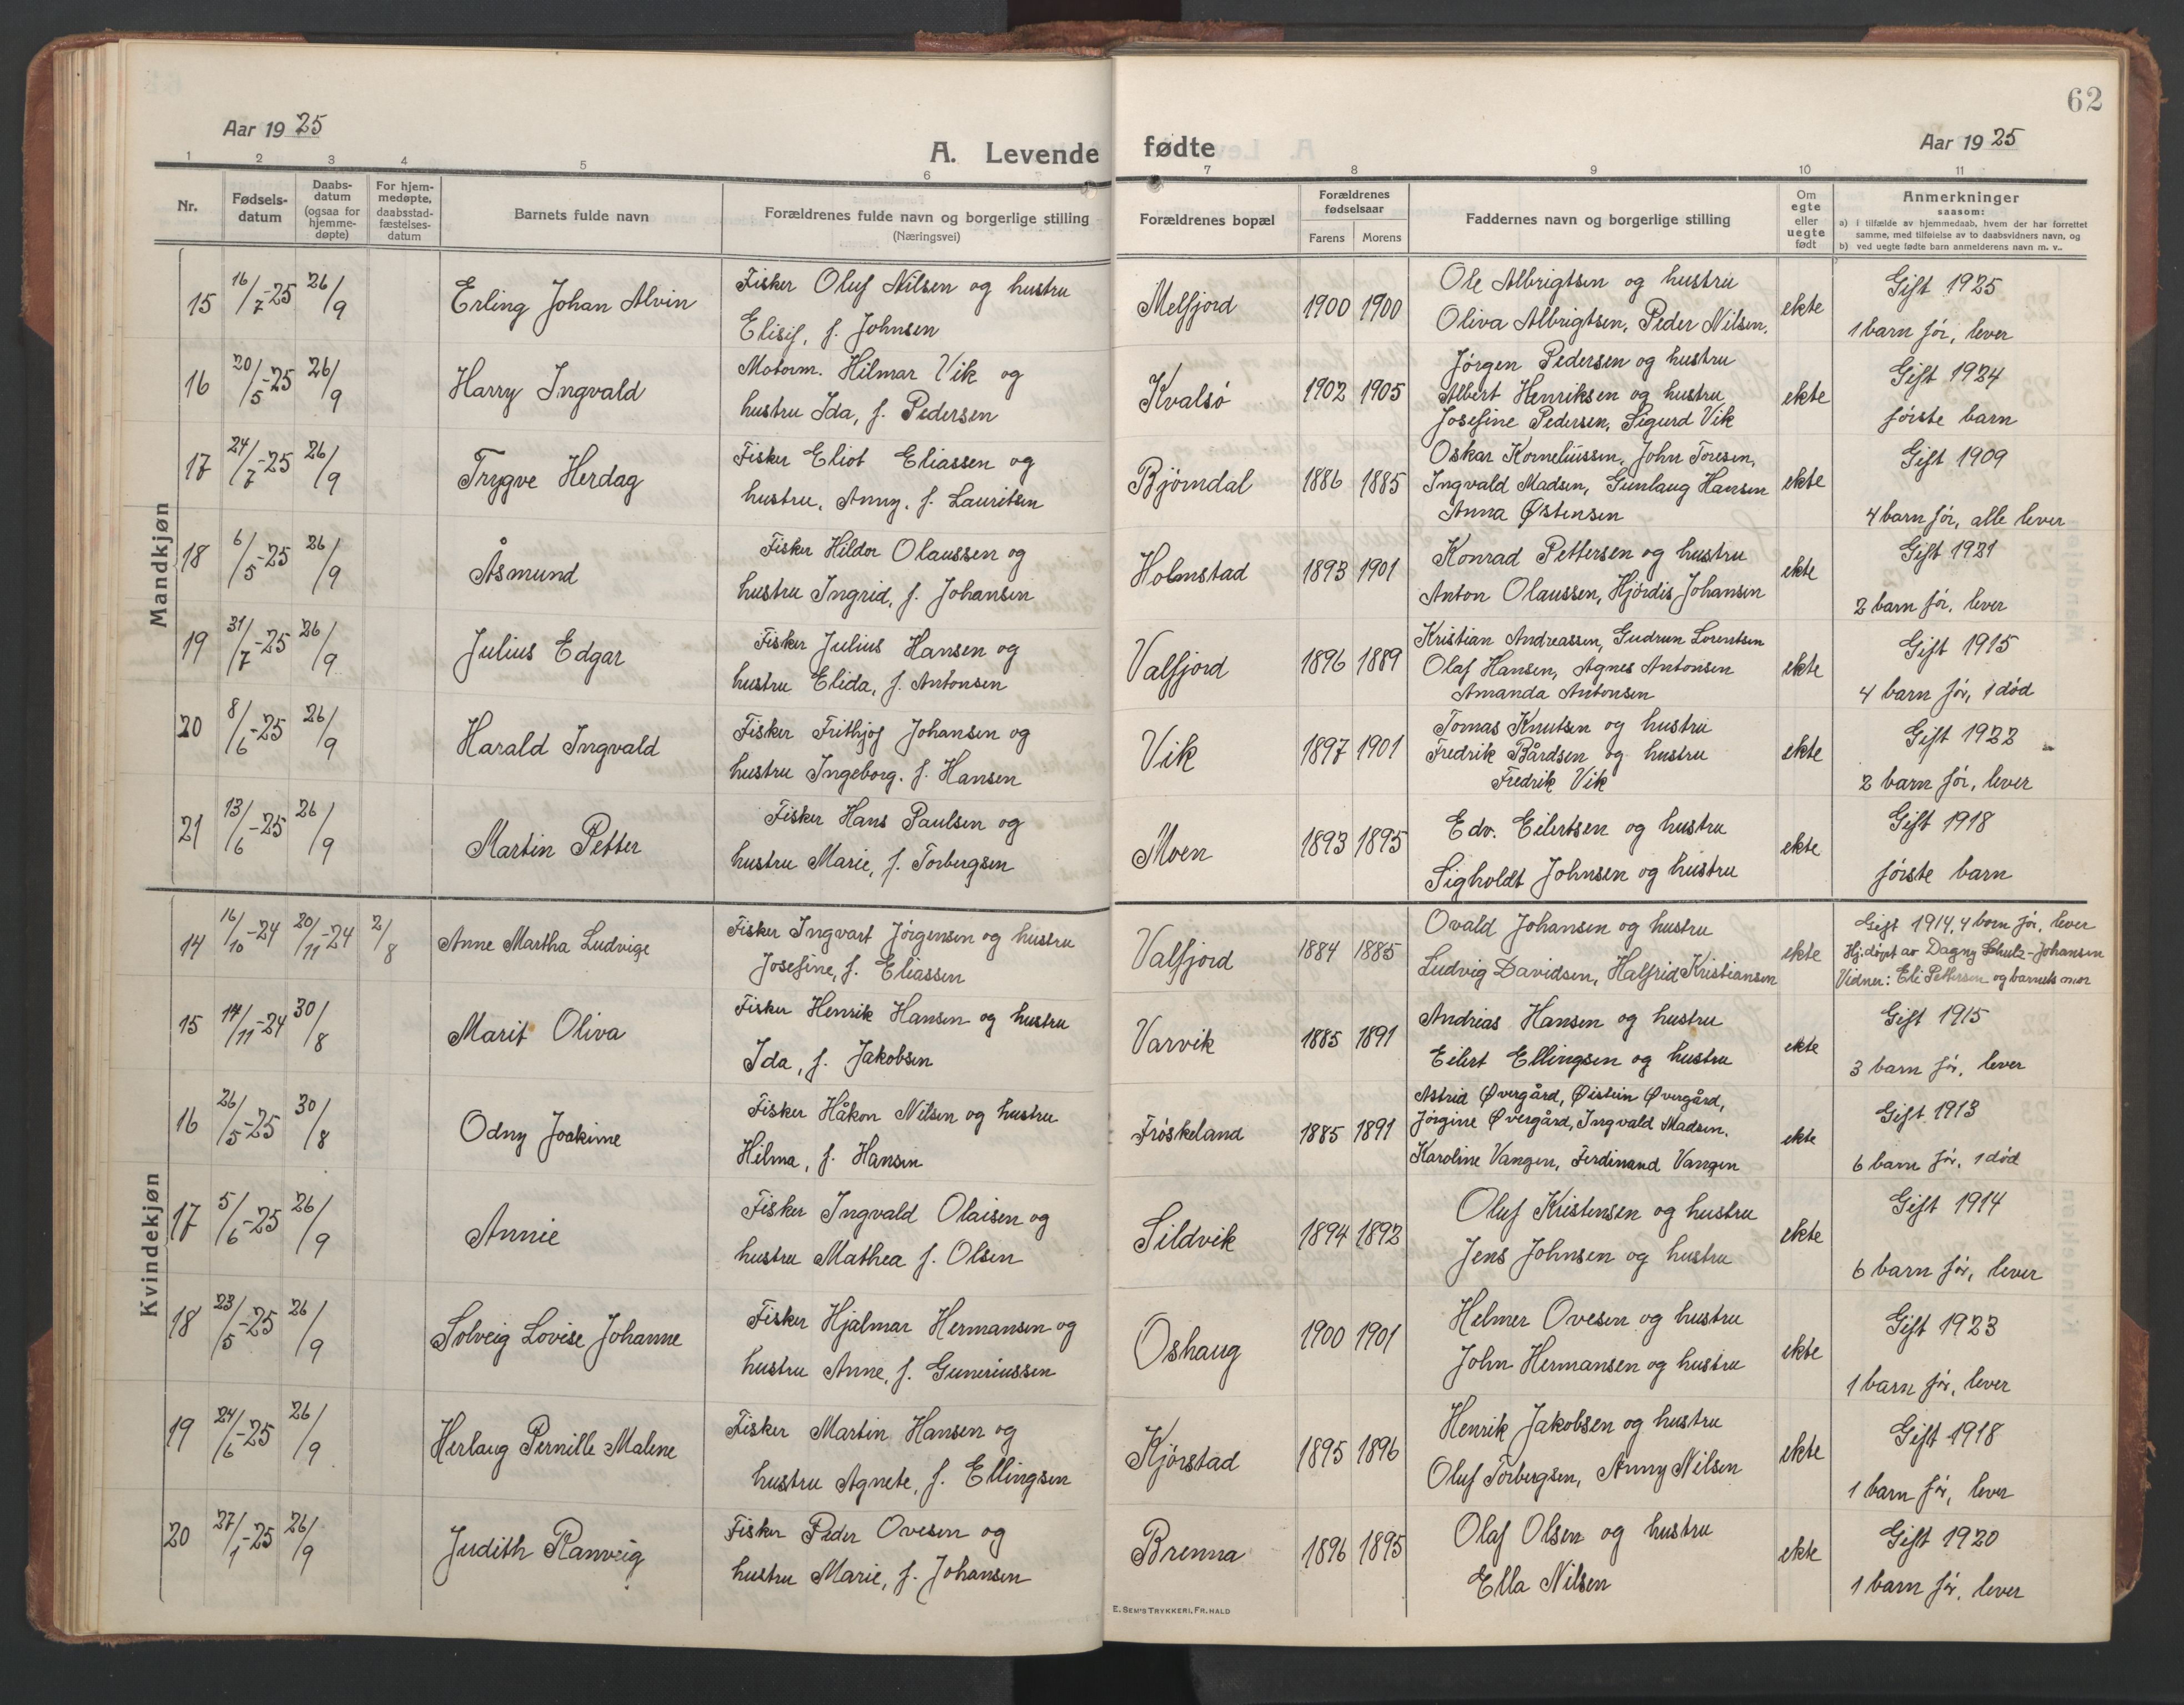 62
Aar 1925
Aar 1925
A. Levende fødte
1 2 3 4 5 6 7 8 9 10 11
Nr.
Fødsels-datum
Daabs-datum (ogsaa for hjemme-døpte)
For hjem-medøpte, daabsstad-fæstelses-datum
Barnets fulde navn
Forældrenes fulde navn og borgerlige stilling
(Næringsvei)
Forældrenes bopæl
Forældrenes fødselsaar
Farens Morens
Faddernes navn og borgerlige stilling
Om egte eller uegte født
Anmerkninger
saasom:
a) i tilfælde av hjemmedaab, hvem der har forrettet samme, med tilføielse av to daabsvidners navn, og
b) ved uegte fødte barn anmelderens navn m. v.
Mandkjøn
15 16/7-25 26/9 Erling Johan Alvin Fisker Oluf Nilsen og hustru
Elisif, f. Johnsen
Melfjord 1900 1900 Ole Albrigtsen og hustru
Oliva Albrigtsen, Peder Nilsen.
ekte Gift 1925
1 barn før, lever
16 20/5-25 26/9 Harry Ingvald Motorm. Hilmar Vik og
hustru Ida, f. Pedersen
Kvalsø 1902 1905 Jørgen Pedersen og hustru
Albert Henriksen og hustru
Josefine Pedersen, Sigurd Vik
ekte Gift 1924
første barn
17 24/7-25 26/9 Trygve Herdag Fisker Eliot Eliassen og
hustru, Anny, f. Lauritsen
Bjørndal 1886 1885 Oskar Korneliussen, John Toresen,
Ingvald Madsen, Gunlaug Hansen
Anna Østensen
ekte Gift 1909
4 barn før, alle lever
18 6/5-25 26/9 Åsmund Fisker Hildor Olaussen og
hustru Ingrid, f. Johansen
Holmstad 1893 1901 Konrad Pettersen og hustru
Anton Olaussen, Hjørdis Johansen
ekte Gift 1921
2 barn før, lever
19 31/7-25 26/9 Julius Edgar Fisker Julius Hansen og
hustru Elida, f. Antonsen
Valfjord 1896 1889 Kristian Andreassen, Gudrun Lorentsen
Olaf Hansen, Agnes Antonsen
Amanda Antonsen
ekte Gift 1915
4 barn før, 1 død
20 8/6-25 26/9 Harald Ingvald Fisker Frithjof Johansen og
hustru Ingeborg. f. Hansen
Vik 1897 1901 Tomas Knutsen og hustru
Fredrik Bårdsen og hustru
Fredrik Vik
ekte Gift 1922
2 barn før, lever
21 13/6-25 26/9 Martin Petter Fisker Hans Paulsen og
hustru Marie, f. Torbergsen
Moen 1893 1895 Edv. Eilertsen og hustru
Sigholdt Johnsen og hustru
ekte Gift 1918
første barn
Kvindekjøn
14 16/10-24 20/11-24 2/8 Anne Martha Ludvige Fisker Ingvart Jørgensen og hustru
Josefine, f. Eliassen
Valfjord 1884 1885 Ovald Johansen og hustru
Ludvig Davidsen, Halfrid Kristiansen
ekte Gift 1914, 4 barn før, lever
Hj.døpt av Dagny Schulz-Johansen
Vidner: Eli Pettersen og barnets mor
15 14/11-24 30/8 Marit Oliva Fisker Henrik Hansen og hustru
Ida, f. Jakobsen
Varvik 1885 1891 Andreas Hansen og hustru
Eilert Ellingsen og hustru
ekte Gift 1915
3 barn før, lever
16 26/5-25 30/8 Odny Joakime Fisker Håkon Nilsen og hustru
Helma, f. Hansen
Frøskeland 1885 1891 Astrid Øvergård, Øistein Øvergård,
Jørgine Øvergård, Ingvald Madsen.
Karoline Vangen, Ferdinand Vangen
ekte Gift 1913
6 barn før, 1 død
17 5/6-25 26/9 Annie Fisker Ingvald Olaisen og
hustru Mathea f. Olsen
Sildvik 1894 1892 Oluf Kristensen og hustru
Jens Johnsen og hustru
ekte Gift 1914
6 barn før, lever
18 23/5-25 26/9 Solveig Lovise Johanne Fisker Hjalmar Hermansen og
hustru Anne, f. Guneriussen
Oshaug 1900 1901 Helmer Ovesen og hustru
John Hermansen og hustru
ekte Gift 1923
1 barn før, lever
19 24/6-25 26/9 Herlaug Pernille Malene Fisker Martin Hansen og
hustru Agnete, f. Ellingsen
Kjørstad 1895 1896 Henrik Jakobsen og hustru
Oluf Torbergsen, Anny Nilsen
ekte Gift 1918
1 barn før, lever
20 27/1-25 26/9 Judith Ranveig Fisker Peder Ovesen og
hustru Marie, f. Johansen
Brenna 1896 1895 Olaf Olsen og hustru
Ella Nilsen
ekte Gift 1920
1 barn før, lever
E. SEM'S TRYKKERI, FR. HALD